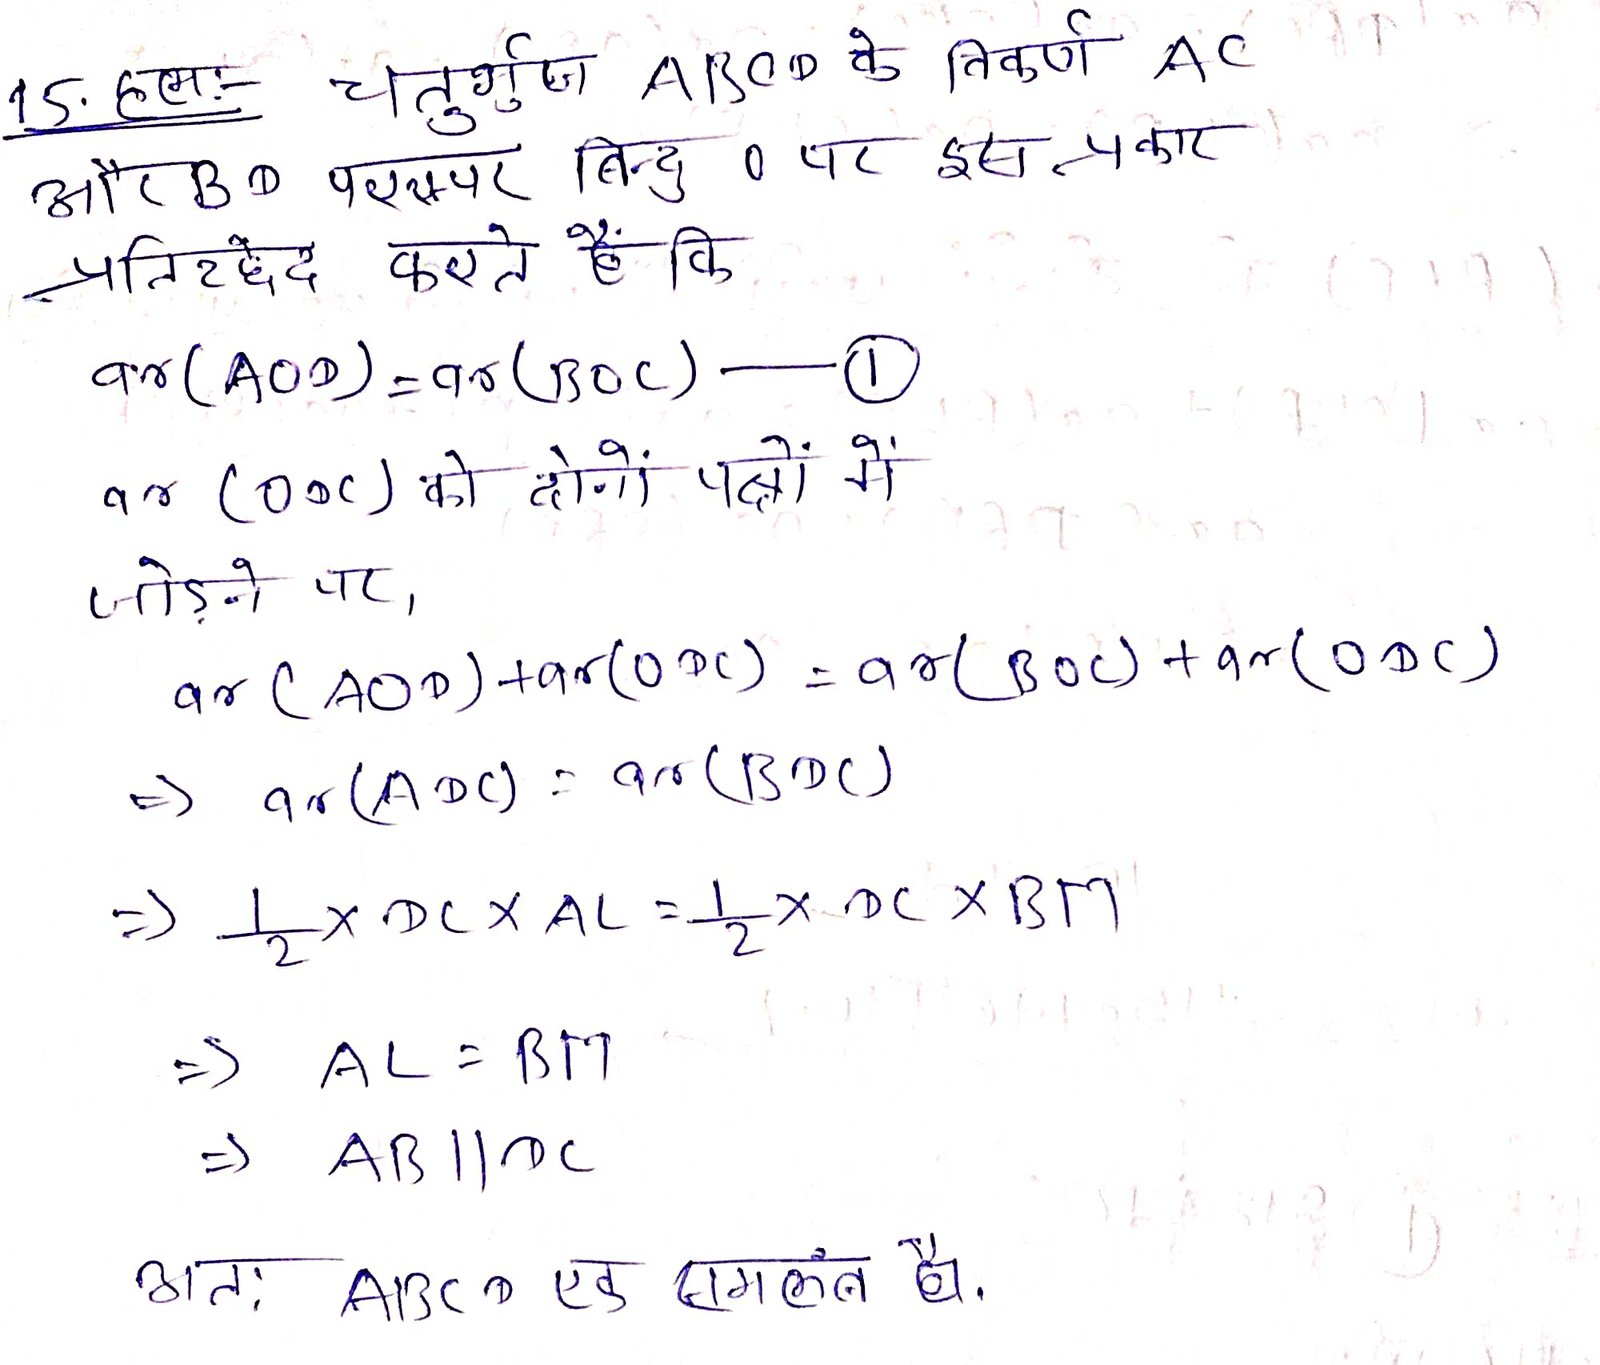 15. हल:-  चतुर्भुज ABCD के विकर्ण AC
और BD परस्पर बिन्दु O पर इस प्रकार
प्रतिच्छेद करते हैं कि
ar(AOD) = ar(BOC) — ①
ar (ODC) को दोनों पक्षों में
जोड़ने पर,
ar (AOD) + ar(ODC) = ar(BOC) + ar(ODC)
=> ar(ADC) = ar(BDC)
=> 1/2 × DC × AL = 1/2 × DC × BM
=> AL = BM
=> AB || DC
अत: ABCD एक समलंब है.